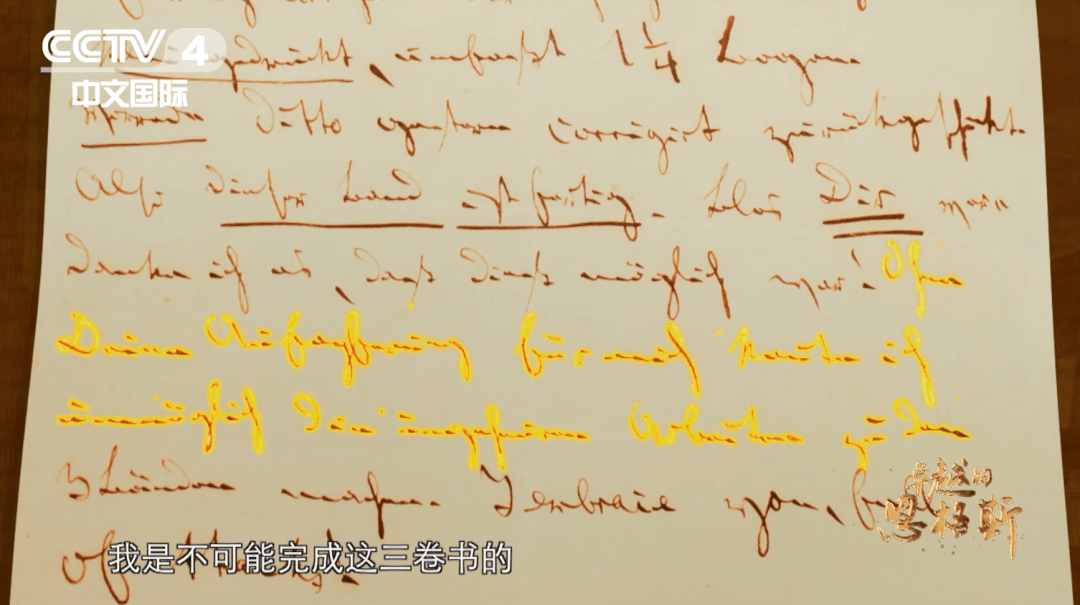 CCTV 4
中文国际
gedruckt, umfaßt 1 1/4 Bogen.
Vorrede ditto gestern corrigirt zurückgeschickt.
Also dieser Band ist fertig. Blos Dir ver
danke ich es, daß dieß möglich war! Ohne
Deine Aufopferung für mich konnte ich
unmöglich die ungeheuren Arbeiten zu den
3 Bänden machen. I embrace you, full
of thanks!
卓越的
恩格斯
我是不可能完成这三卷书的